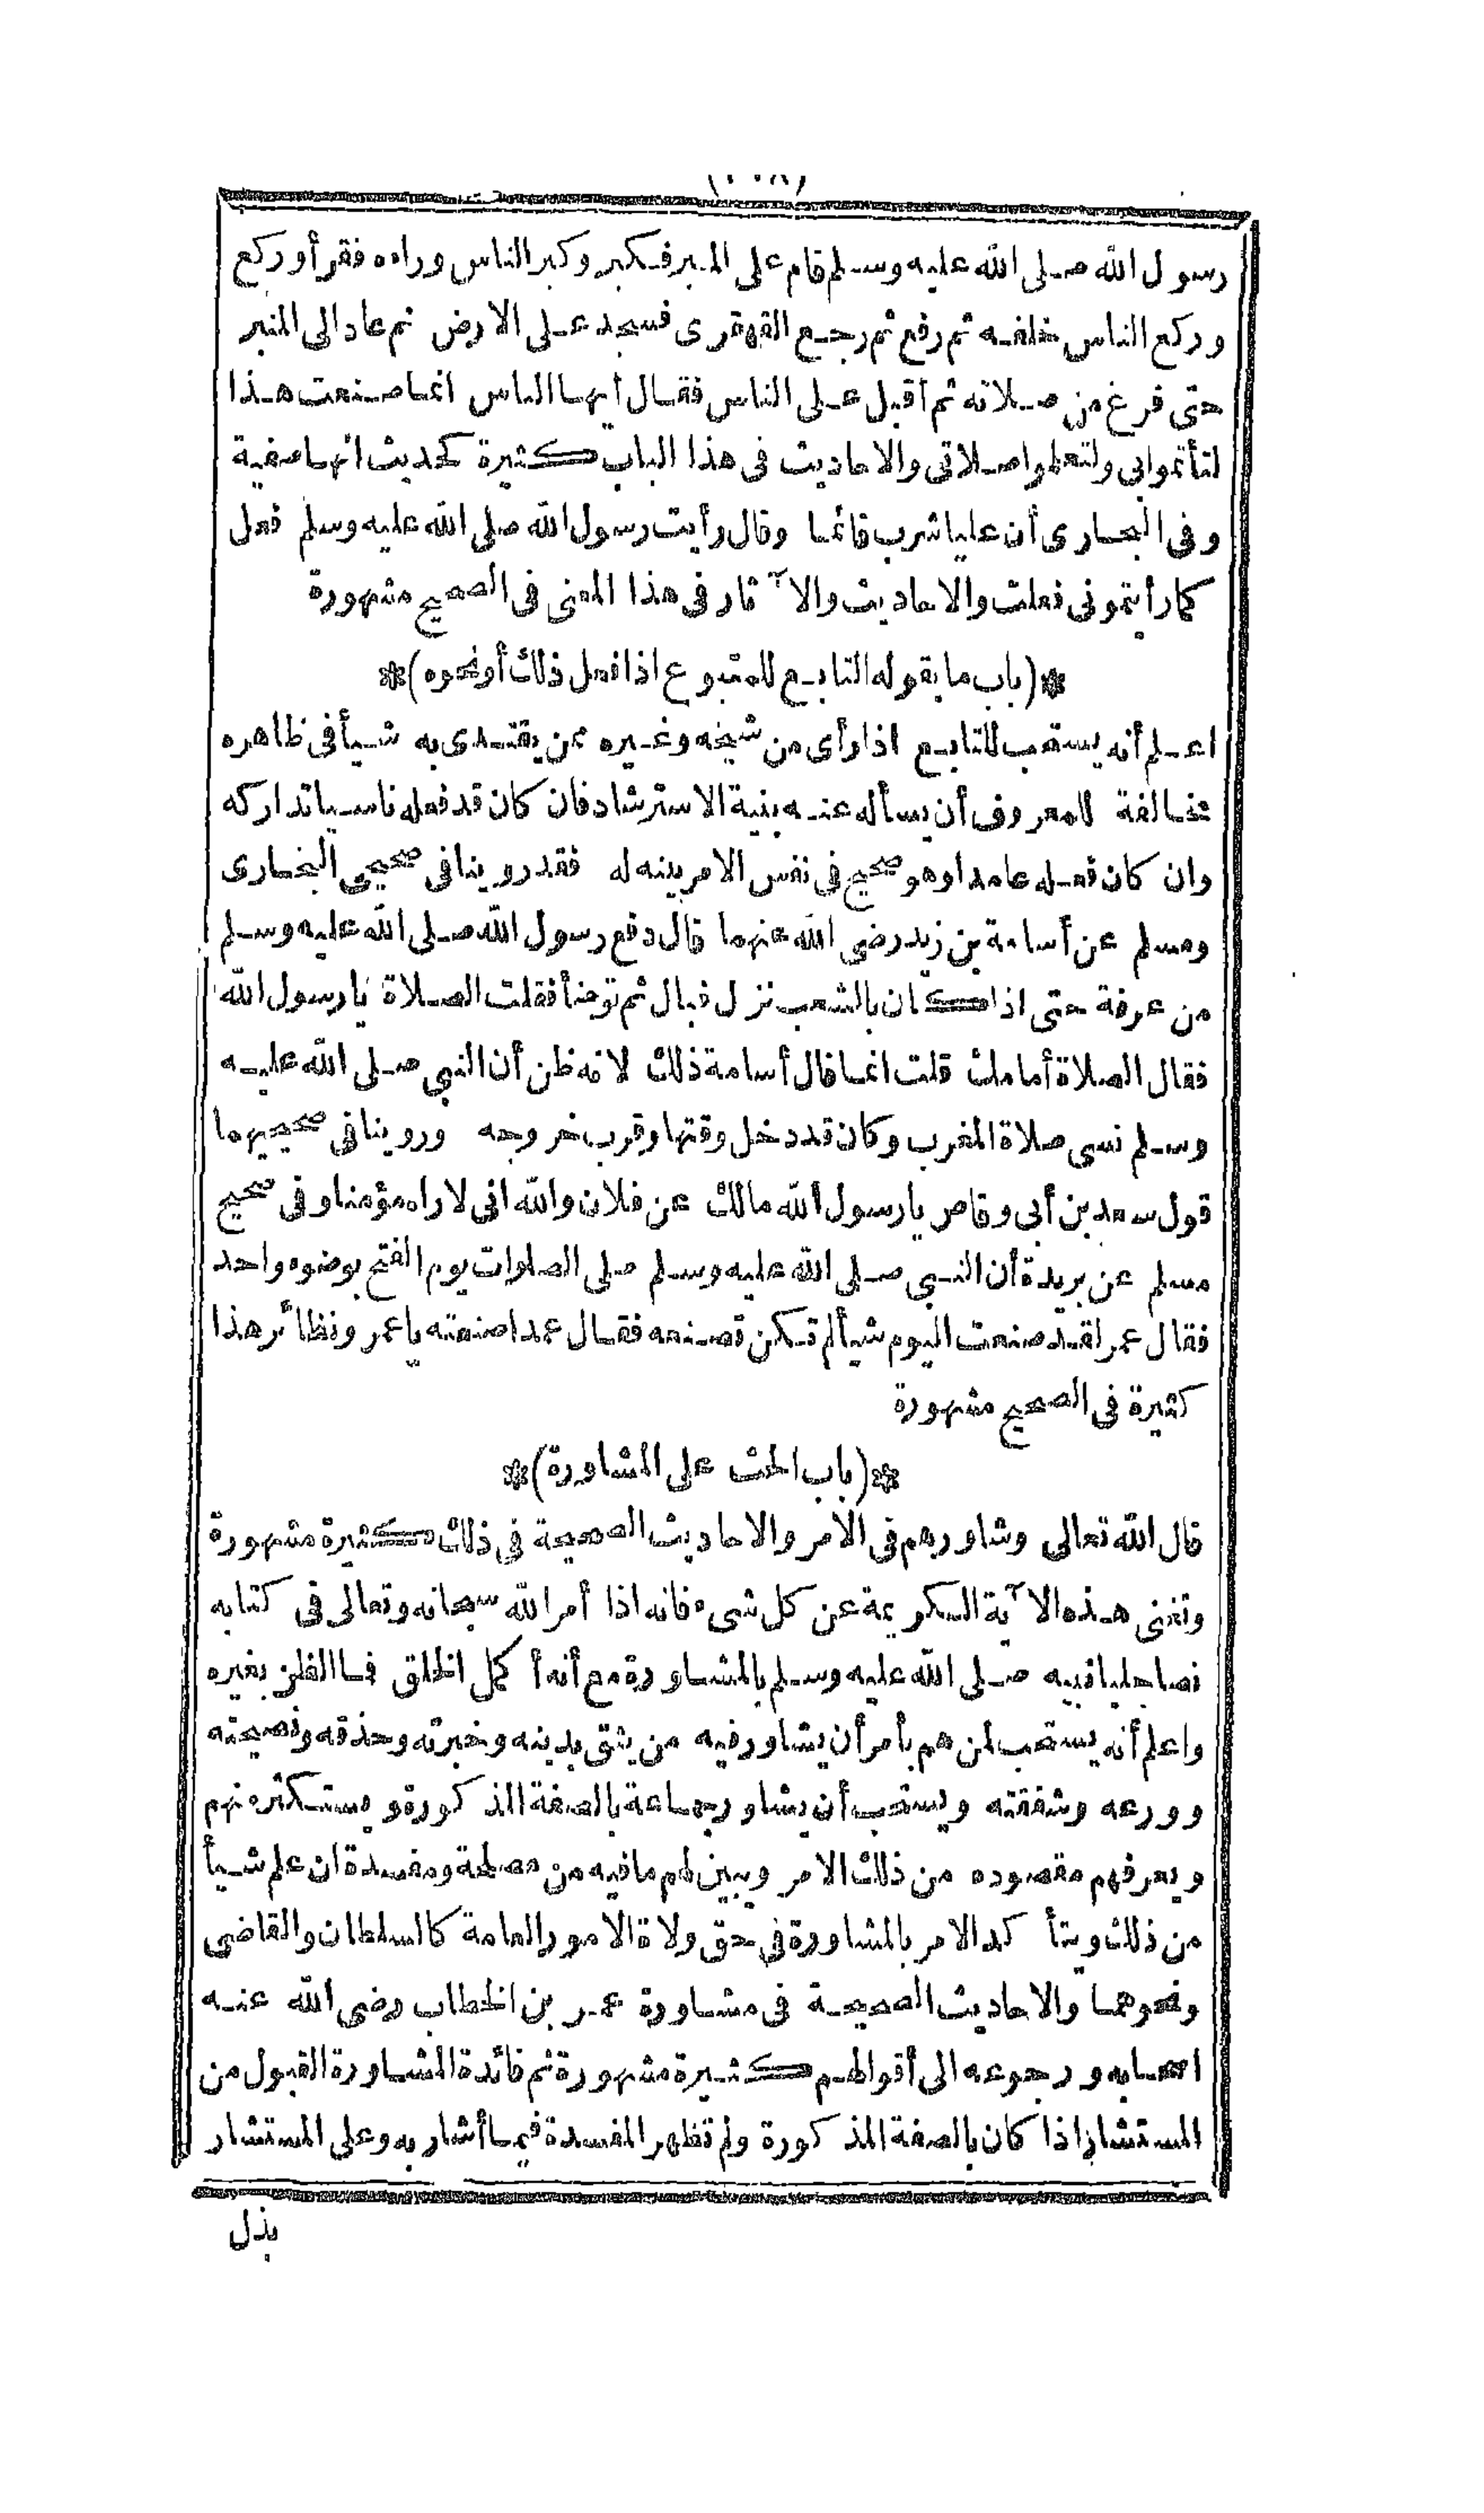 رسول الله صلى الله عليه وسلم قام على المنبر فكبر وكبر الناس وراءه فقرأ وركع
وركع الناس خلفه ثم رفع ثم رجع القهقرى فسجد على الارض ثم عاد الى المنبر
حتى فرغ من صلاته ثم أقبل على الناس فقال أيها الناس انما صنعت هذا
لتأتموا بى ولتعلموا صلاتى والاحاديث فى هذا الباب كثيرة كحديث انها صفية
وفى البخارى أن عليا شرب قائما وقال رأيت رسول الله صلى الله عليه وسلم فعل
كما رأيتمونى فعلت والاحاديث والآثار فى هذا المعنى فى الصحيح مشهورة
*(باب ما يقوله التابع للمتبوع اذا فعل ذلك أو نحوه)*
اعلم أنه يستحب للتابع اذا رأى من شيخه وغيره ممن يقتدى به شيأ فى ظاهره
مخالفة للمعروف أن يسأله عنه بنية الاسترشاد فان كان قد فعله ناسيا تداركه
وان كان فعله عامدا وهو صحيح فى نفس الامر بينه له فقد روينا فى صحيحى البخارى
ومسلم عن أسامة بن زيد رضى الله عنهما قال دفع رسول الله صلى الله عليه وسلم
من عرفة حتى اذا كان بالشعب نزل فبال ثم توضأ فقلت الصلاة يا رسول الله
فقال الصلاة أمامك قلت انما قال أسامة ذلك لانه ظن أن النبى صلى الله عليه
وسلم نسى صلاة المغرب وكان قد دخل وقتها وقرب خروجه وروينا فى صحيحيهما
قول سعد بن أبى وقاص يا رسول الله مالك عن فلان والله انى لاراه مؤمنا وفى صحيح
مسلم عن بريدة أن النبى صلى الله عليه وسلم صلى الصلوات يوم الفتح بوضوء واحد
فقال عمر لقد صنعت اليوم شيأ لم تكن تصنعه فقال عمدا صنعته يا عمر ونظائر هذا
كثيرة فى الصحيح مشهورة
*(باب الحث على المشاورة)*
قال الله تعالى وشاورهم فى الامر والاحاديث الصحيحة فى ذلك كثيرة مشهورة
وتغنى هذه الآية الكريمة عن كل شىء فانه اذا أمر الله سبحانه وتعالى فى كتابه
نصا جليا نبيه صلى الله عليه وسلم بالمشاورة مع أنه أكمل الخلق فما الظن بغيره
واعلم أنه يستحب لمن هم بأمر أن يشاور فيه من يثق بدينه وخبرته وحذقه ونصيحته
وورعه وشفقته ويستحب أن يشاور جماعة بالصفة المذكورة ويستكثر منهم
ويعرفهم مقصوده من ذلك الامر ويبين لهم ما فيه من مصلحة ومفسدة ان علم شيأ
من ذلك ويتأكد الامر بالمشاورة فى حق ولاة الامور العامة كالسلطان والقاضى
ونحوهما والاحاديث الصحيحة فى مشاورة عمر بن الخطاب رضى الله عنه
اصحابه ورجوعه الى أقوالهم كثيرة مشهورة ثم فائدة المشاورة القبول من
المستشار اذا كان بالصفة المذكورة ولم تظهر المفسدة فيما أشار به وعلى المستشار
بذل